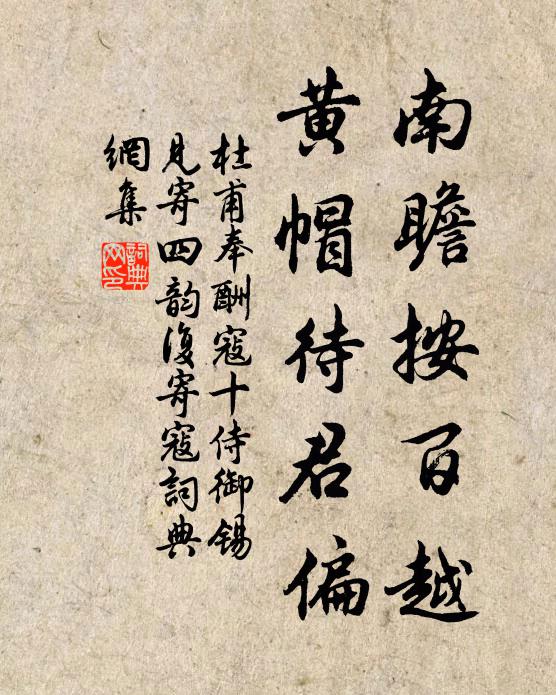 南瞻按百越
黃帽待君偏
杜甫奉酬寇十侍御錫
見寄四韵復寄寇詞典
網集
詞典
网印